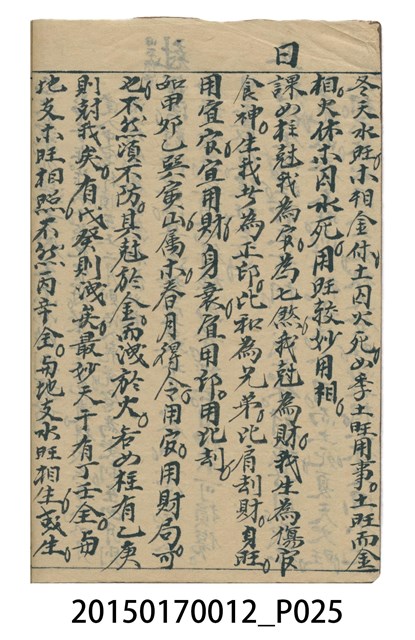 日
冬天水旺木相金付土囚火死如季土旺用事土旺而金
相火休木囚水死用旺較妙用相
課如柱尅我為官為七煞我尅為財我生為傷官
食神生我者為正印比和為兄弟比肩刦財身旺
用宜官宜用財身衰宜用印用比刦
如甲卯乙巽寅山属木春月得令用官用財局可
也不然須不防其尅於金而洩於火若如柱有乙庚
則尅我矣有戊癸則洩矣最妙天干有丁壬全与
地支木旺相照不然丙辛全与地支水旺相生或生
20150170012_P025